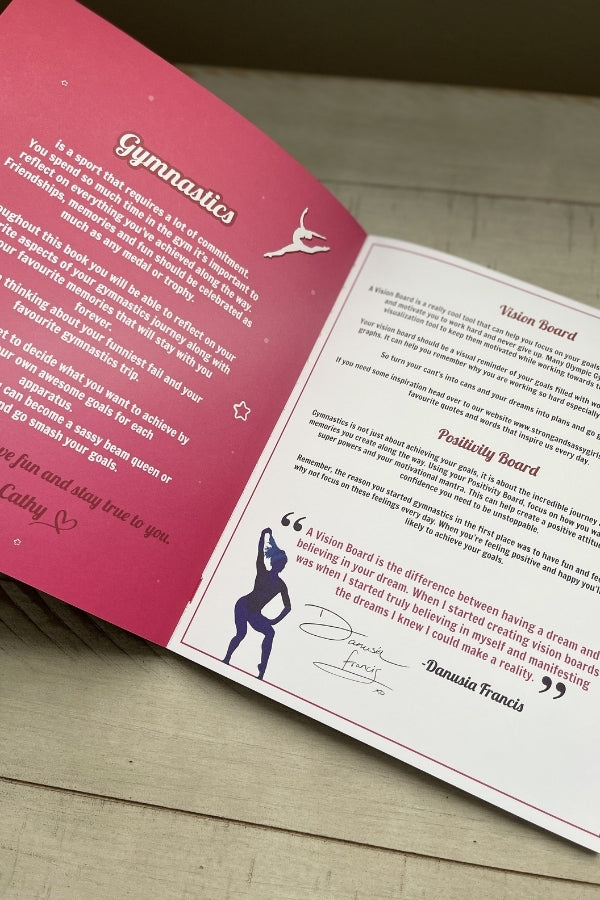 Gymnastics
is a sport that requires a lot of commitment.
You spend so much time in the gym it's important to
reflect on everything you've achieved along the way.
Friendships, memories and fun should be celebrated as
much as any medal or trophy.
oughout this book you will be able to reflect on your
rite aspects of your gymnastics journey along with
our favourite memories that will stay with you
forever.
thinking about your funniest fail and your
favourite gymnastics trip.
et to decide what you want to achieve by
ur own awesome goals for each
apparatus.
can become a sassy beam queen or
nd go smash your goals.
ve fun and stay true to you.
Cathy
Vision Board
A Vision Board is a really cool tool that can help you focus on your goals
and motivate you to work hard and never give up. Many Olympic Gy
visualization tool to keep them motivated while working towards t
Your vision board should be a visual reminder of your goals filled with wo
graphs. It can help you remember why you are working so hard especially
So turn your cant's into cans and your dreams into plans and go
If you need some inspiration head over to our website www.strongandsassygirls
favourite quotes and words that inspire us every day.
Positivity Board
Gymnastics is not just about achieving your goals, it is about the incredible journey
memories you create along the way. Using your Positivity Board, focus on how you wa
super powers and your motivational mantra. This can help create a positive attitu
confidence you need to be unstoppable.
Remember, the reason you started gymnastics in the first place was to have fun and fe
why not focus on these feelings every day. When you're feeling positive and happy you'll
likely to achieve your goals.
“ A Vision Board is the difference between having a dream and
believing in your dream. When I started creating vision boards
was when I started truly believing in myself and manifesting
the dreams I knew I could make a reality. ”
Danusia
Francis
xo
-Danusia Francis